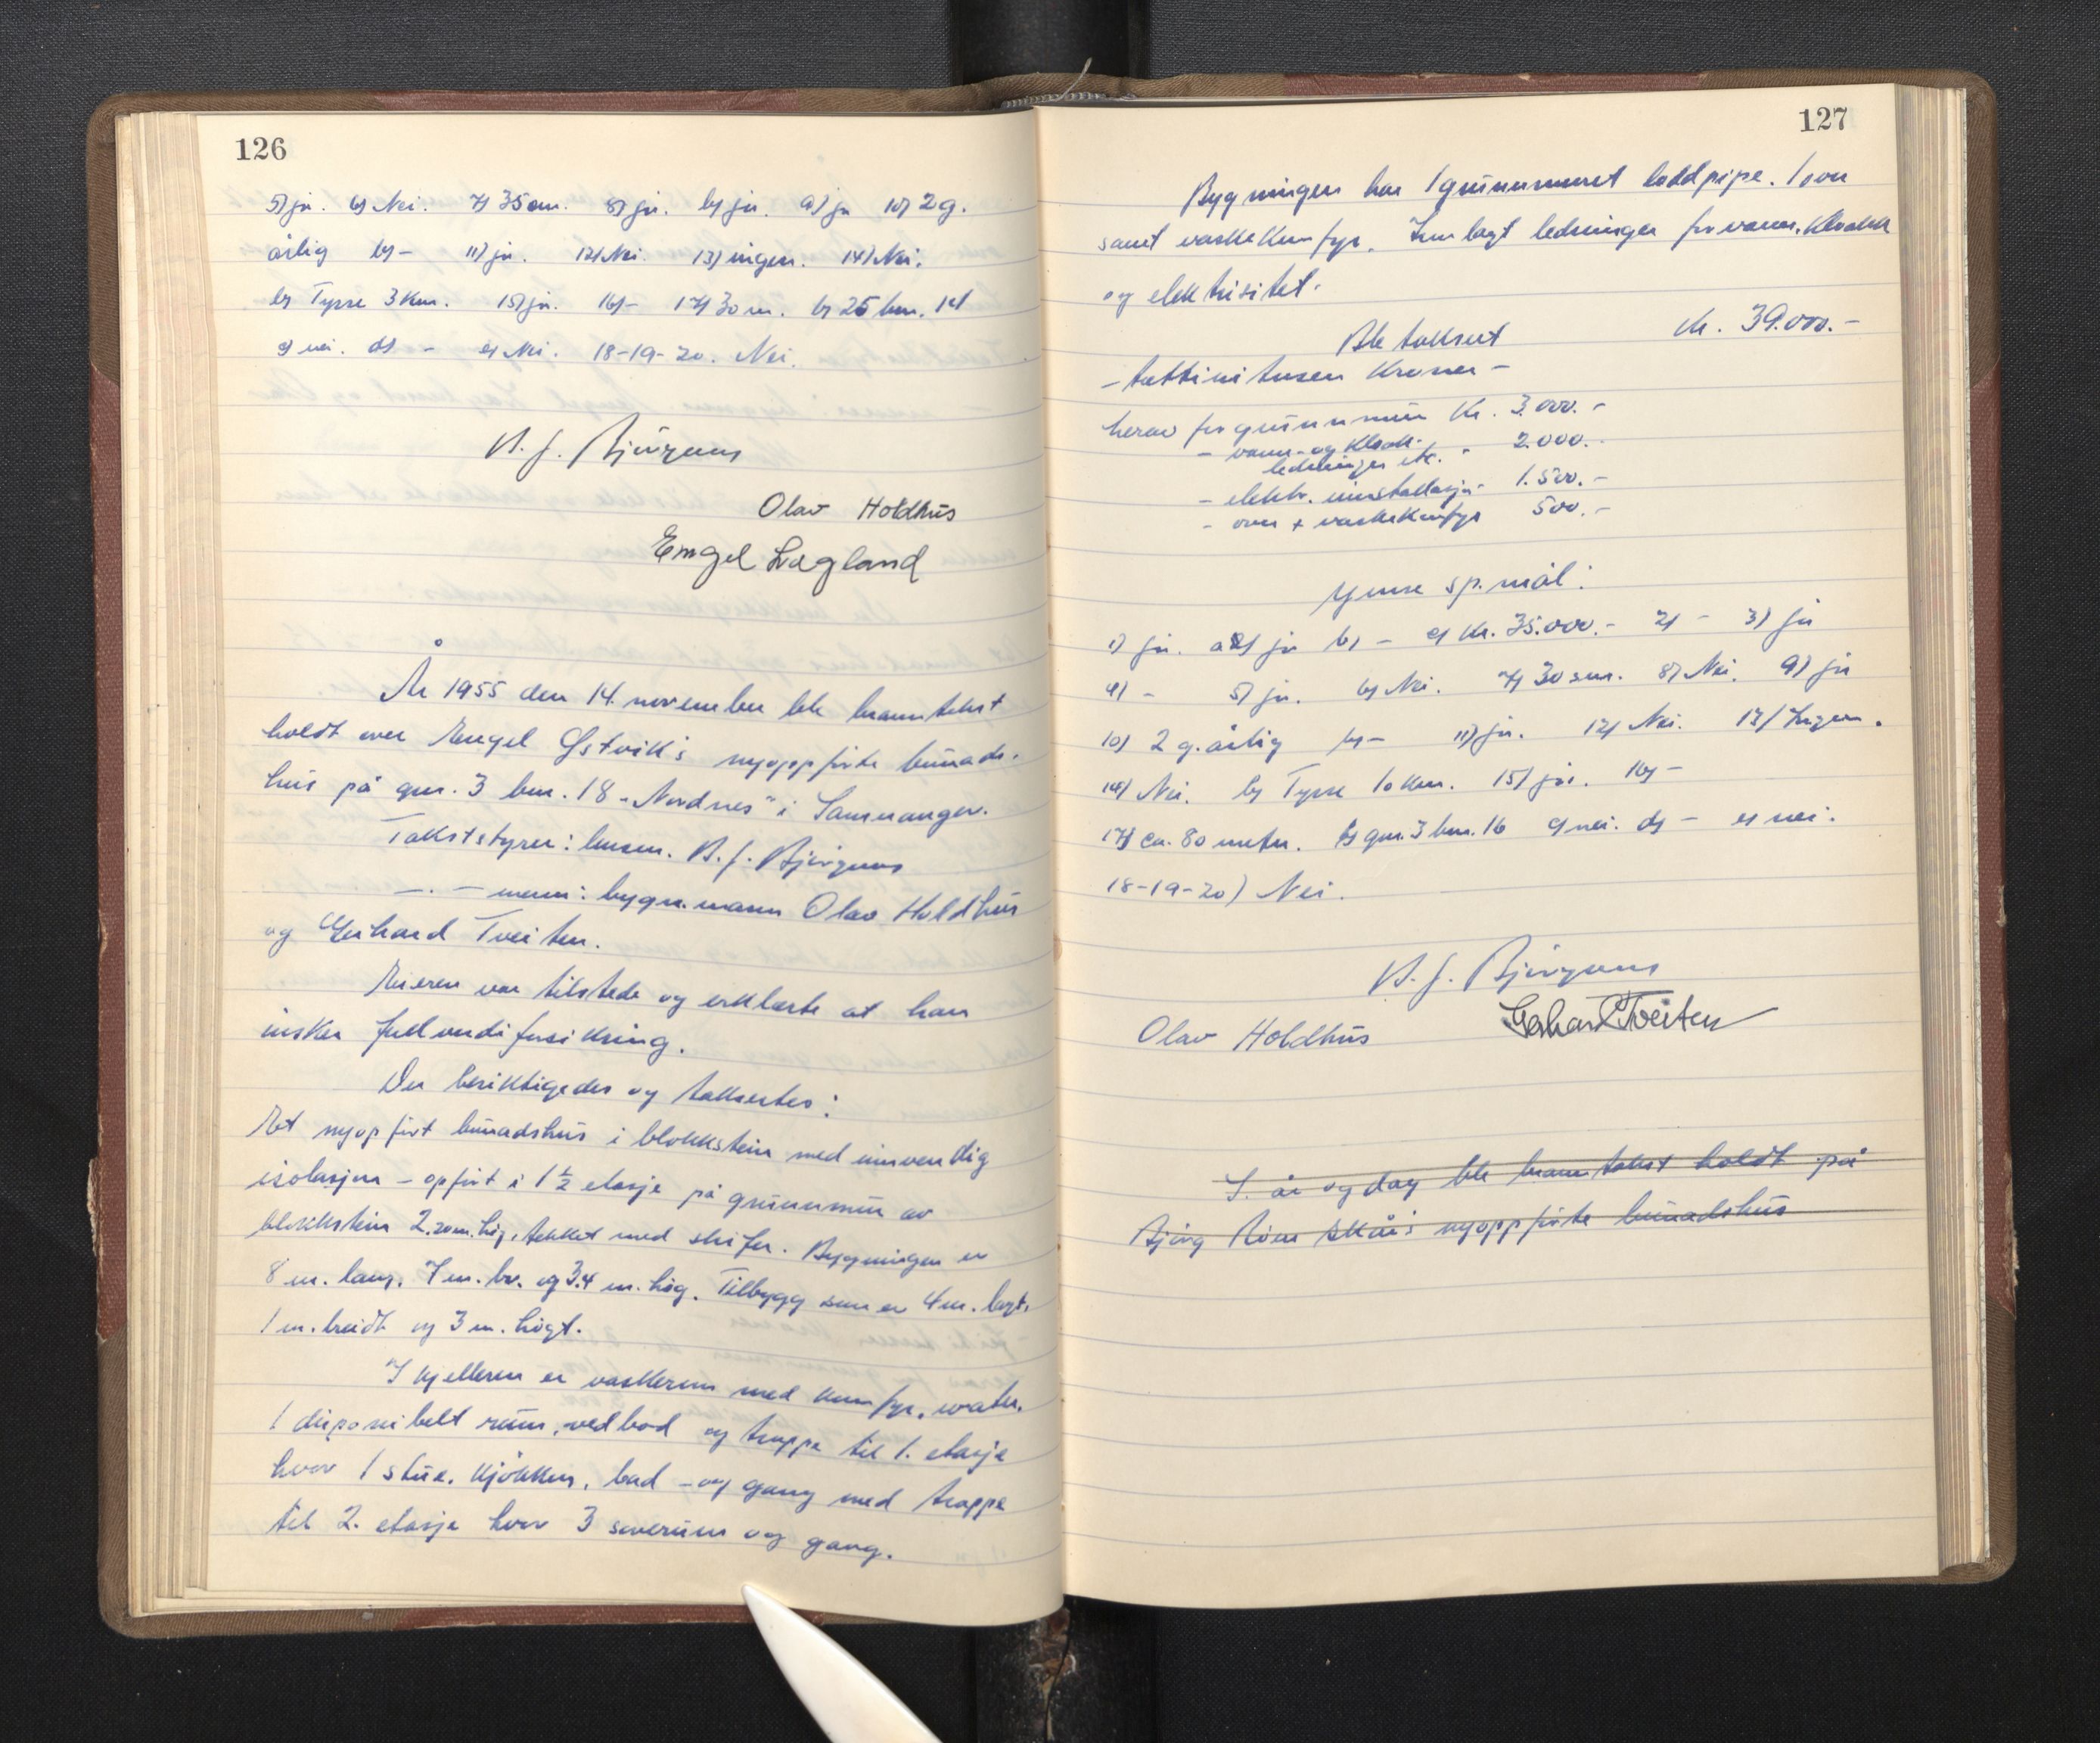 126
5) ja. 6) Nei. 7) 35 cm. 8) ja. b) ja. 9) ja 10) 2 g.
årlig b) - 11) ja. 12) Nei. 13) ingen. 14) Nei.
b) Tysse 3 km. 15) ja. 16) - 17) 30 m. b) 25 bnr. 
c) nei. d) - e) Nei. 18-19-20. Nei.
Olav Holdhus
Engel Lagland
År 1955 den 14. november ble branntakst
holdt over Engel Østvik's nyoppførte búnads-
hus på gnr. 3 bnr. 18 "Nordnes" i Samnanger.
Takststyrer: lensm.
- . - menn: bygn.mann Olav Holdhus
og Gerhard Tveiten.
Eieren var tilstede og erklærte at han
ønsker fullverdiforsikring.
Der besiktigedes og takseertes:
Et nyoppført búnadshus i blokkstein med innvendig
isolasjon - oppført i 1 1/2 etasje på grunnmur av
blokkstein 2.20 m. høg, tekket med skifer. Bygningen er
8 m. lang, 7 m. br. og 3.4 m. høg. Tilbygg som er 4 m. langt,
1 m. breidt og 3 m. høgt.
I kjelleren er vaskerum med komfyr, water,
1 disponibelt rum, vedbod og trappe til 1. etasje
hvor 1 stue, kjøkken, bad - og gang med trappe
til 2. etasje hvor 3 soverum og gang.
127
Bygningen har 1 grunnmuret loddpipe. 1 ovn
samt vaskekomfyr. Innlagt ledninger for vann, kloakk
og elektrisitet.
Ble taksert kr. 39.000.-
- trettini tusen kroner -
herav for grunnmur kr. 3.000.-
- vann- og kloak-
ledninger etc. - 2.000.-
- elektr. innstallasjon - 1.500.-
- ovn + vaskekomfyr 500.-
Ymse sp.mål:
1) ja. a) ja b) - c) kr. 35.000.- 2) - 3) ja
4) - 5) ja. 6) Nei. 7) 30 cm. 8) Nei. 9) ja
10) 2 g. årlig b) - 11) ja. 12) Nei. 13) Ingen.
14) Nei. b) Tysse 10 km. 15) ja. 16) -
17) ca. 80 meter. b) gnr. 3 bnr. 16 c) nei. d) - e) nei.
18-19-20) Nei.
Olav Holdhus Gerhard Tveiten
S. år og dag ble branntakst holdt på
nyoppførte búnadshus